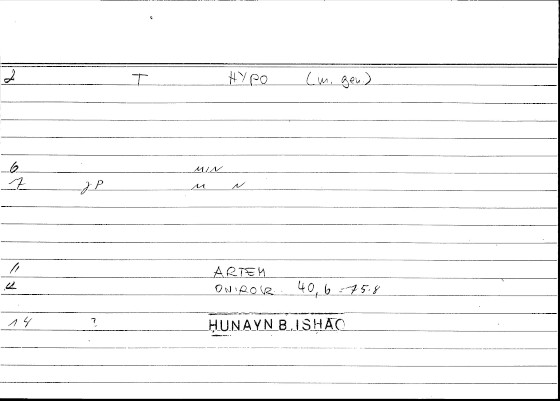 2 T HYPO (m. gen)
6 MIN
7 gP M N
11 ARTEM
ONIROKR 40,6 - 75.8
14 ? HUNAYN B. ISHAQ